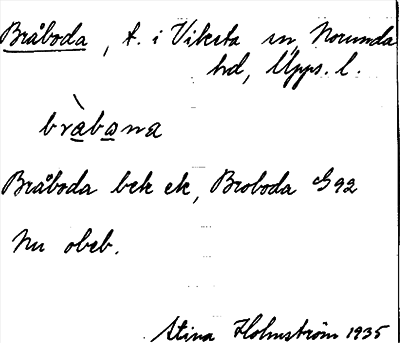 Bråboda, t. i Viksta sn, Norunda
hd, Upps. l.
bràbona
Bråboda bek ek, Broboda G92
Nu obeb.
Stina Holmström 1935